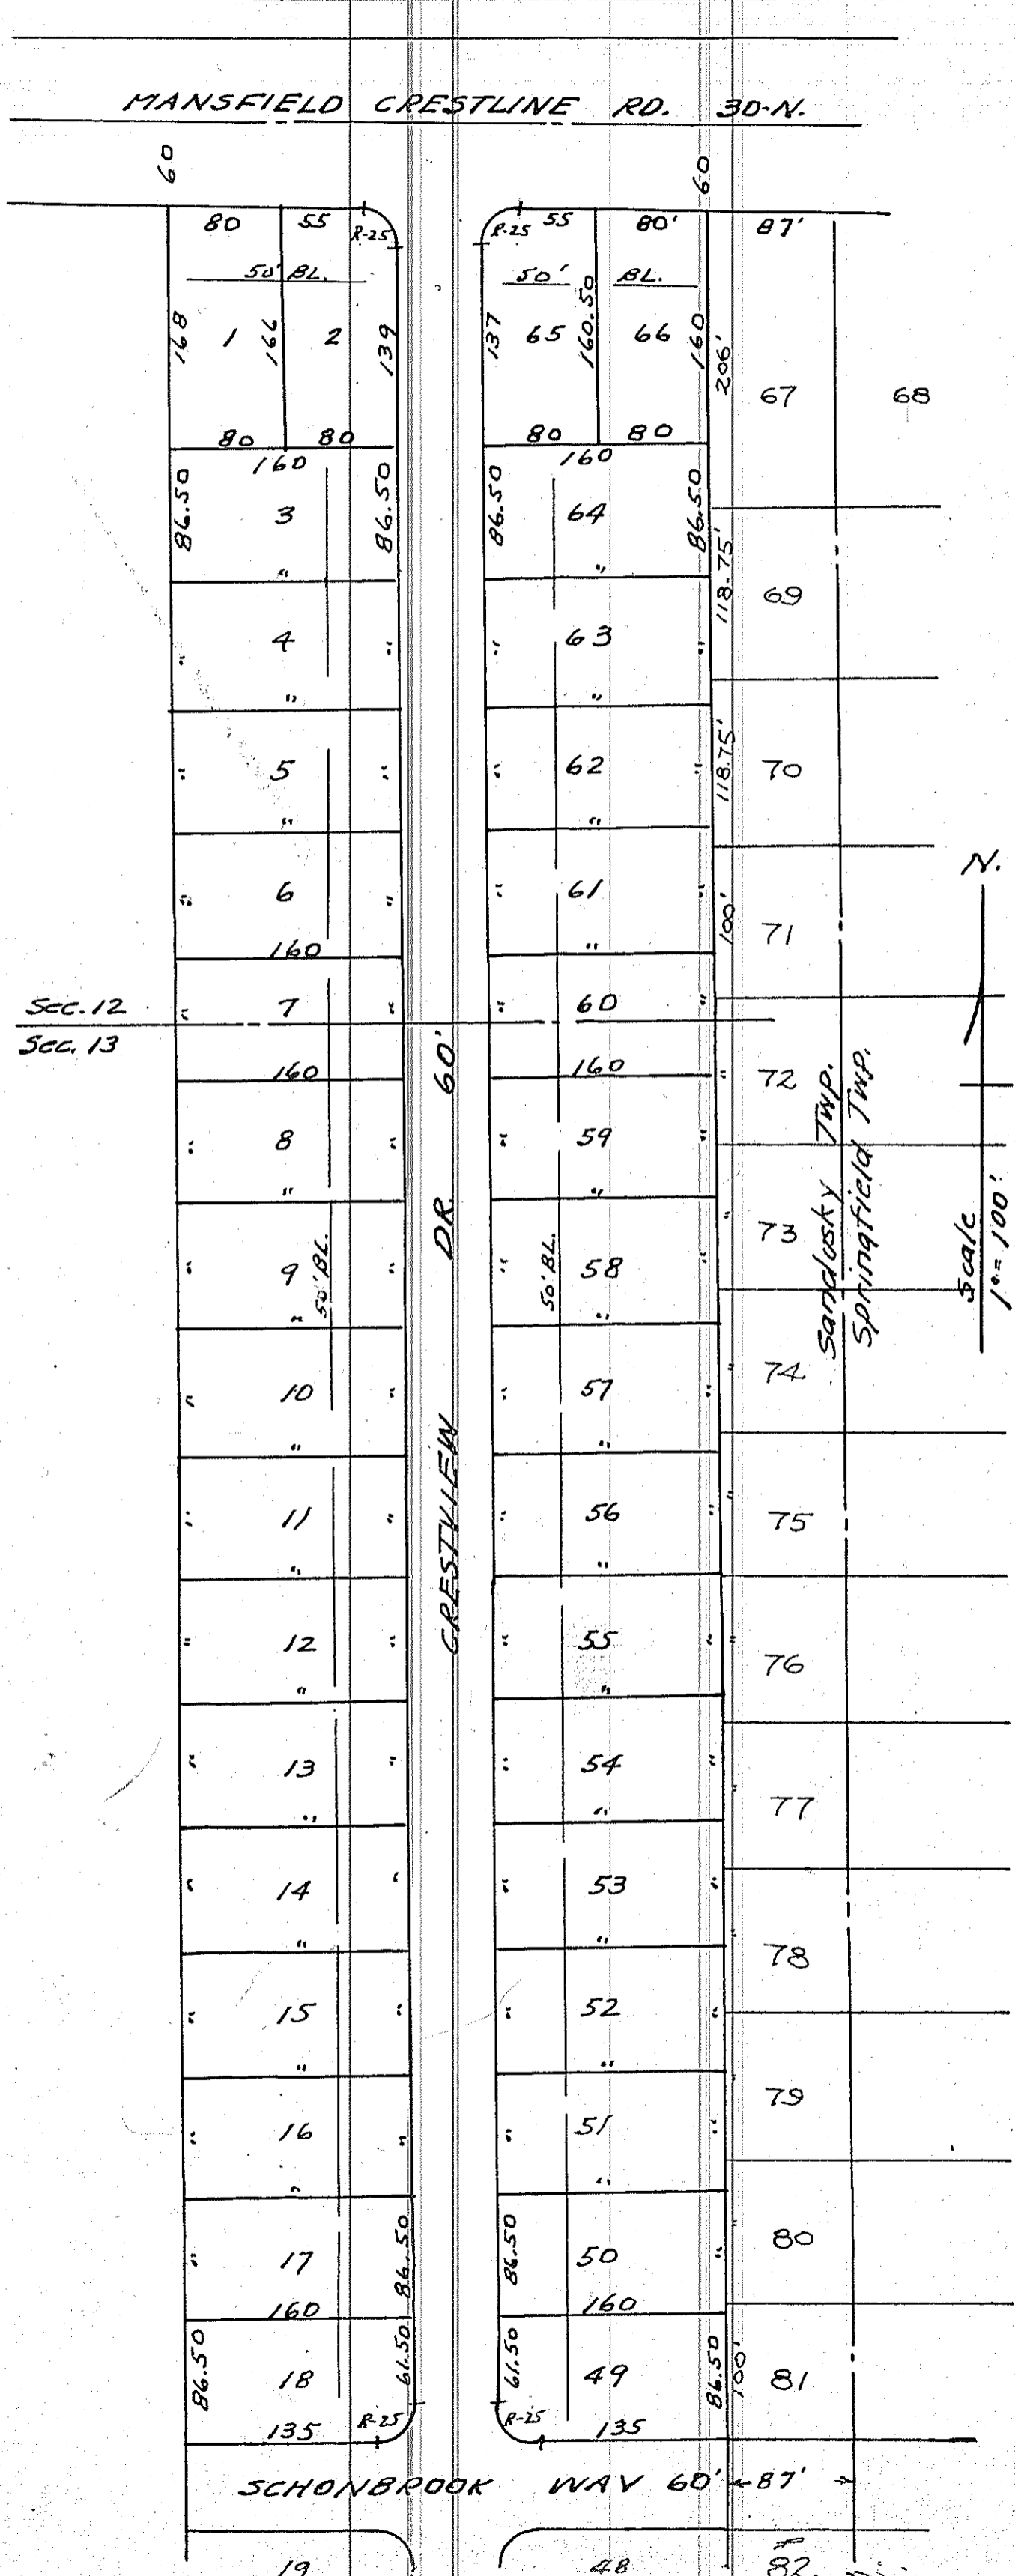 MANSFIELD CRESTLINE RD. 30-N.
60 60
80 55 R-25 R-25 55 80' 87'
50' BL. 50' BL.
168 1 166 2 139 137 65 160.50 66 160 206' 67 68
80 80 80 80
160 160
86.50 3 86.50 86.50 64 86.50
" "
118.75' 69
" 4 " " 63 "
" "
118.75' 70
" 5 " " 62 "
" "
" 6 " " 61 " 100' 71
160 "
Sec. 12
" 7 " " 60 "
Sec. 13
160 160 " 72
" 8 " " 59 "
" "
" 73
" 9 " " 58 "
50' BL. 50' BL.
" "
" 74
" 10 " " 57 "
" "
" 75
" 11 " " 56 "
" "
" 12 " " 55 " " 76
" "
" 13 " " 54 "
" 77
" "
" 14 " " 53 "
" "
" 78
" 15 " " 52 "
" "
" 79
" 16 " " 51 "
" "
" 17 86.50 86.50 50 " " 80
160 160
86.50 18 61.50 61.50 49 86.50 100' 81
135 R-25 R-25 135
CRESTVIEW DR. 60'
Sandusky Twp.
Springfield Twp.
N.
Scale
1"= 100'
SCHONBROOK WAY 60' 87'
19 48 82